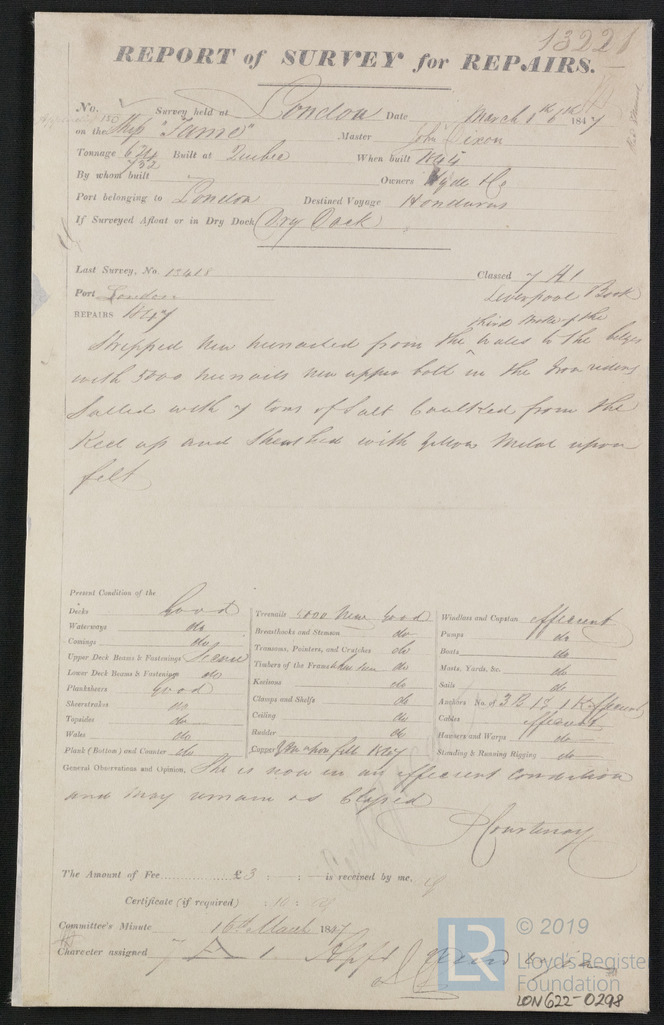 13221
REPORT of SURVEY for REPAIRS.
No. Survey held at London Date March 1847
on the Ship "Fame" Master John Dixon
Tonnage 732 Built at Quebec When built
By whom built Owners Hyde & Co
Port belonging to London Destined Voyage Honduras
If Surveyed Afloat or in Dry Dock (Dry Dock)
Last Survey, No. 13418 Classed 7 A 1
Port London Liverpool Book
REPAIRS 1847 third stroke of the
Stripped New treenailed from the Wales to the bilges
with 5000 treenails new upper bolt in the Iron riders
Salted with 7 tons of Salt Caulked from the
Keel up and Sheathed with Yellow Metal upon
felt
Present Condition of the
Decks Good
Waterways do
Comings do
Upper Deck Beams & Fastenings
Lower Deck Beams & Fastenings do
Planksheers Good
Sheerstrakes do
Topsides do
Wales do
Plank (Bottom) and Counter do
Treenails 5000 New Good
Breasthooks and Stemson do
Transoms, Pointers, and Crutches do
Timbers of the Frame do
Keelsons do
Clamps and Shelfs do
Ceiling do
Rudder do
Copper on felt
Windlass and Capstan efficient
Pumps do
Boats do
Masts, Yards, &c. do
Sails do
Anchors No. of 3 B 1 S 1 K efficient
Cables efficient
Hawsers and Warps do
Standing & Running Rigging do
General Observations and Opinion, She is now in an efficient condition
and may remain as Classed
Courtenay
The Amount of Fee £3 : : is received by me,
Certificate (if required) : 10 :
Committee's Minute 16th March 1847
Character assigned 7 A 1
LR © 2019
Lloyd's Register
Foundation
LON622-0298